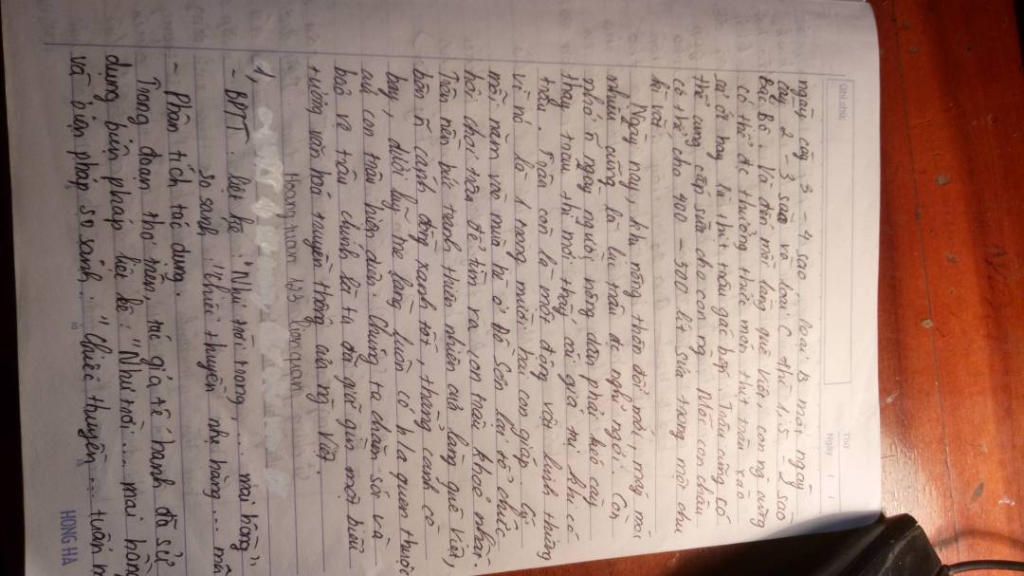 Thứ
Ngày
ngày cày 3 - 4 sào, loại B mỗi ngày
cày 2 - 3 sào và loại C thì 1,5 - 2 sào
Bắc Bộ. Và đến mỗi làng quê Việt, con ng cũng
có thể đc thưởng thức món thịt trâu xào
ớt hay là thịt trâu gác bếp. Trâu cũng có
thể cung cấp sữa cho con ng. Mỗi con trâu
có thể cho 400 - 500 lít sữa trong một chu
kì vắt.
Ngày nay, khi nông thôn đổi mới, máy móc
nhiều cũng là lúc trâu đc nghỉ ngơi. Còn
nhớ ngày người nông dân phải cuốc cày
thay trâu thì mới thấy có giá trị khi có
trâu. Trâu còn là một động vật linh thiêng
vì nó là 1 trong mười hai con giáp. Cứ
mỗi năm vào mùa hè ở Đồ Sơn lại tổ chức
hội chọi trâu để tìm ra con trâu khoẻ nhất.
Trên nền bức tranh thiên nhiên của làng quê Việt,
bên cạnh đồng xanh tốt, thẳng cánh cò
bay, dưới luỹ tre làng luôn có h/a quen thuộc
của con trâu hiền diện. Chúng ta chăm sóc và
bảo vệ trâu chính là ta đã giữ gìn một biểu
tượng văn hoá truyền thống của ng Việt.
1,
- BPNT: liệt kê "Như trời trong, ... mai hồng",
so sánh "Chiếc thuyền nhẹ hăng ... mã
- Phân tích tác dụng.
Trong đoạn thơ trên, tác giả Tế Hanh đã sử
dụng biện pháp liệt kê: "Như trời ... mai hồng
và biện pháp so sánh: "Chiếc thuyền ... tuấn m
HONG HA